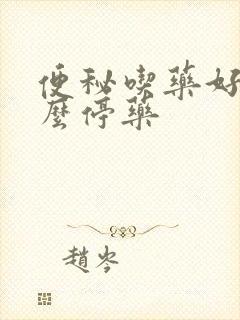 便秘喫藥好
麼停藥
趙岑